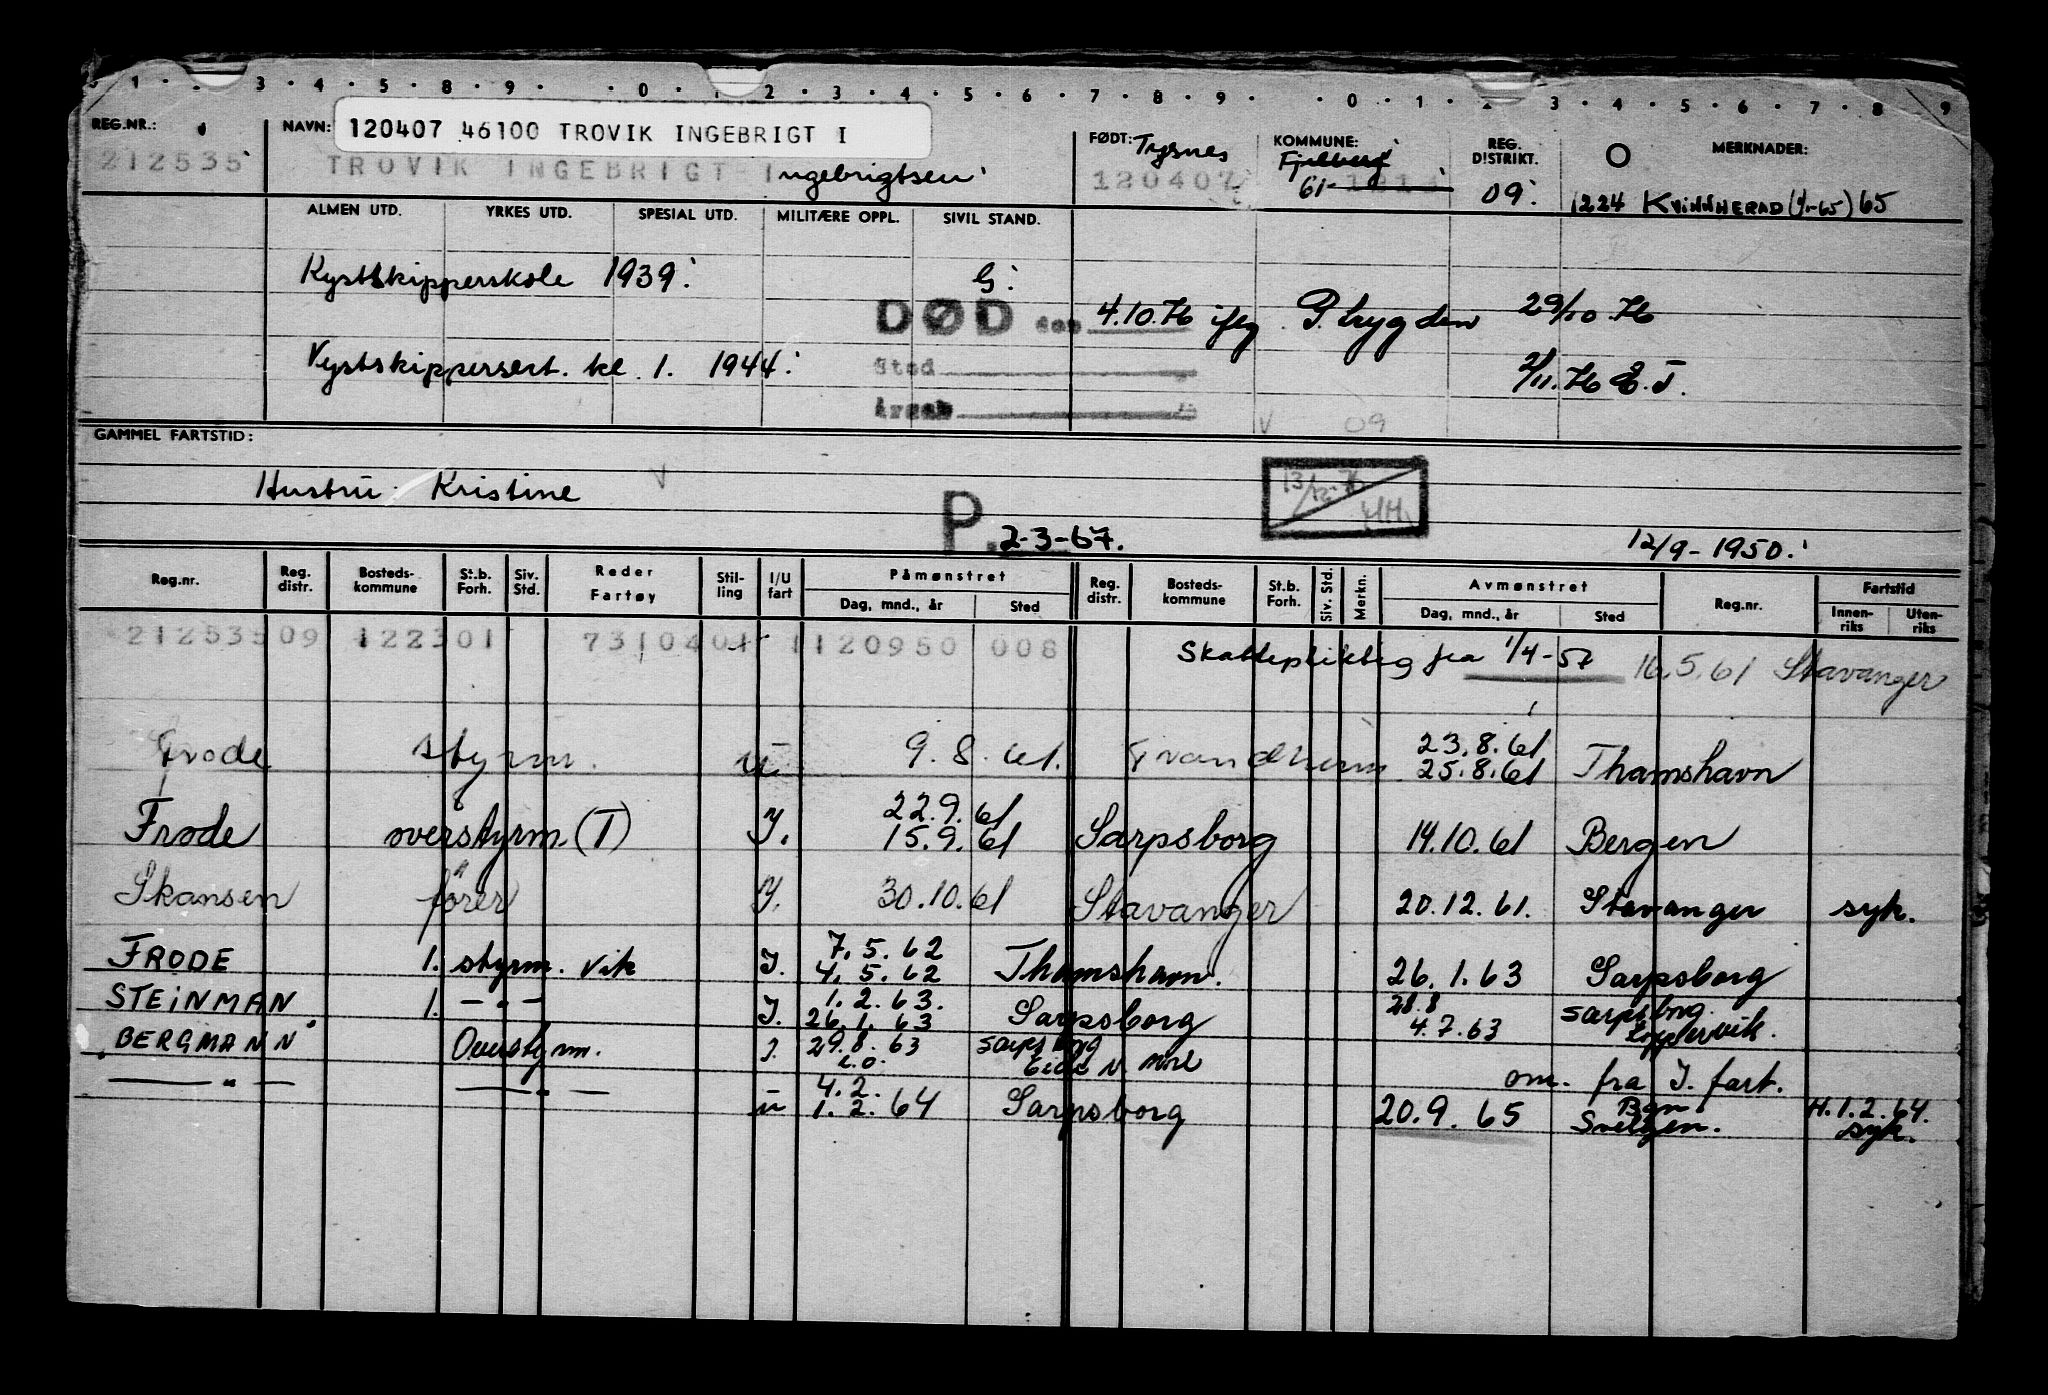 1 · 3 · 4 · 5 · 8 · 9 · 0 · 1 2 · 3 · 4 · 5 · 6 · 7 · 8 · 9 · 0 · 1 · 2 3 · 4 · 5 · 6 · 7 · 8 9
REG.NR.: NAVN: 120407 46100 TROVIK INGEBRIGT I FØDT: Tysnes KOMMUNE: Fjelberg REG. DISTRIKT. MERKNADER:
212535 TROVIK INGEBRIGT Ingebrigtsen 120407 61- 1214 09 1224 KVINNHERAD (1/1-65) 65
ALMEN UTD. YRKES UTD. SPESIAL UTD. MILITÆRE OPPL. SIVIL STAND.
Kystskipperskole 1939. G.
DØD den 4.10.76 iflg P. trygden 29/10.76
Kystskippersert. kl. 1. 1944. Sted 2/11.76 E.T.
Årsak V 09
GAMMEL FARTSTID:
Hustru: Kristine V 13/12-76
P. 2-3-67. 12/9-1950.
Reg.nr. Reg. distr. Bosteds-kommune St.b. Forh. Siv. Std. Reder Fartøy Stil-ling I/U fart Påmønstret Dag, mnd., år Sted Reg. distr. Bosteds-kommune St.b. Forh. Siv. Std. Merkn. Avmønstret Dag, mnd., år Sted Reg.nr. Fartstid Innen-riks Uten-riks
212535 09 122301 7310401 1120950 008 Skattepliktig fra 1/4-57 16.5.61 Stavanger
Frode styrm. U. 9.8.61. Trondheim 23.8.61 25.8.61 Thamshavn
Frode overstyrm. (T) I. 22.9.61 15.9.61 Sarpsborg 14.10.61 Bergen
Skansen fører I. 30.10.61 Stavanger 20.12.61. Stavanger syk.
FRODE 1. styrm. vik I. 7.5.62 4.5.62 Thamshavn. 26.1.63 Sarpsborg
STEINMAN 1. -"- I. 1.2.63. 26.1.63 Sarpsborg 28.8 4.7.63 Sarpsborg.
BERGMANN Overstyrm. I. 29.8.63 Sarpsborg om. fra I. fart.
—"— —"— U 4.2. 1.2.64 Sarpsborg 20.9.65 Bgn. Svelgen. H.1.2.64. syk.